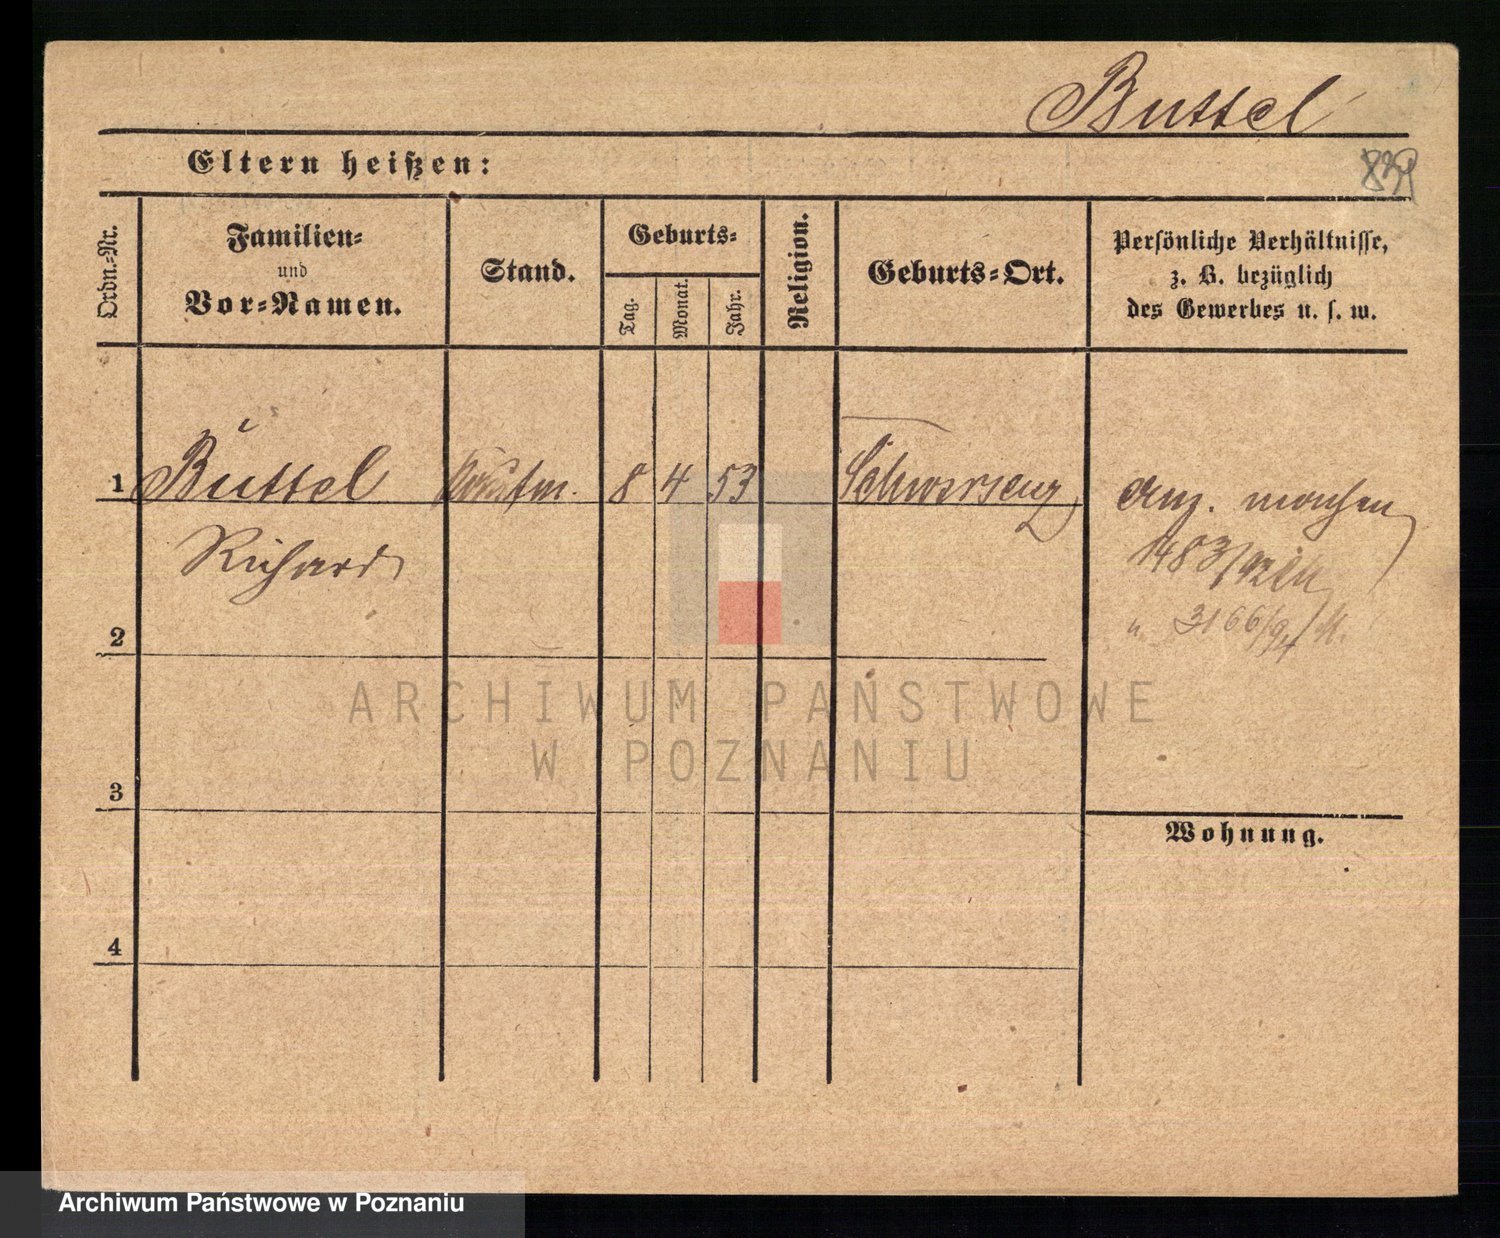 Buttel
Eltern heißen:
839
Ordn.-Nr.
Familien-
und
Vor-Namen.
Stand.
Geburts-
Tag.
Monat.
Jahr.
Religion.
Geburts-Ort.
Persönliche Verhältnisse,
z. B. bezüglich
des Gewerbes u. s. w.
1 Büttel Kaufm. 8 4 53 Schwersenz
Richard
1483/92
" 3166/94 M.
2
3
4
Wohnung.
ARCHIWUM PAŃSTWOWE
W POZNANIU
Archiwum Państwowe w Poznaniu